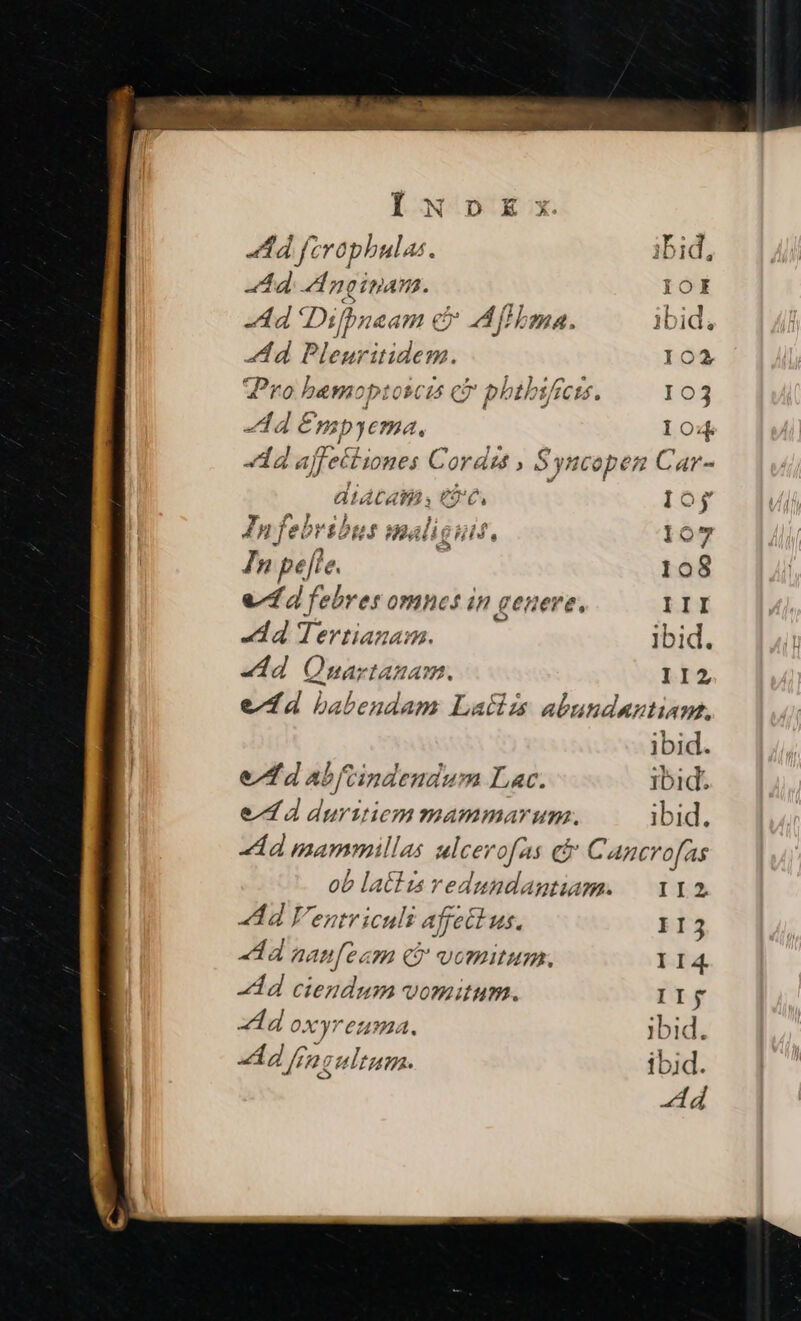 INDEX.
Ad ſcrophulas. ibid.
Ad Anginam. 101
Ad Diſpnæam & Aſthma. ibid.
Ad Pleuritidem. 102
Pro hæmoptoicis & phthiſicis. 103
Ad Empyema. 104
Ad affectiones Cordis, Syncopen Car-
diacam, &c. 105
In febribus malignis. 107
In peſte. 108
Ad febres omnes in genere. 111
Ad Tertianam. ibid.
Ad Quartanam. 112
Ad habendam Lactis abundantiam.
ibid.
Ad abſcindendum Lac. ibid.
Ad duritiem mammarum. ibid.
Ad mammillas ulceroſas & Cancroſas
ob lactis redundantiam. 112
Ad Ventriculi affectus. 113
Ad nauſeam & vomitum. 114
Ad ciendum vomitum. 115
Ad oxyreuma. ibid.
Ad ſingultum. ibid.
Ad